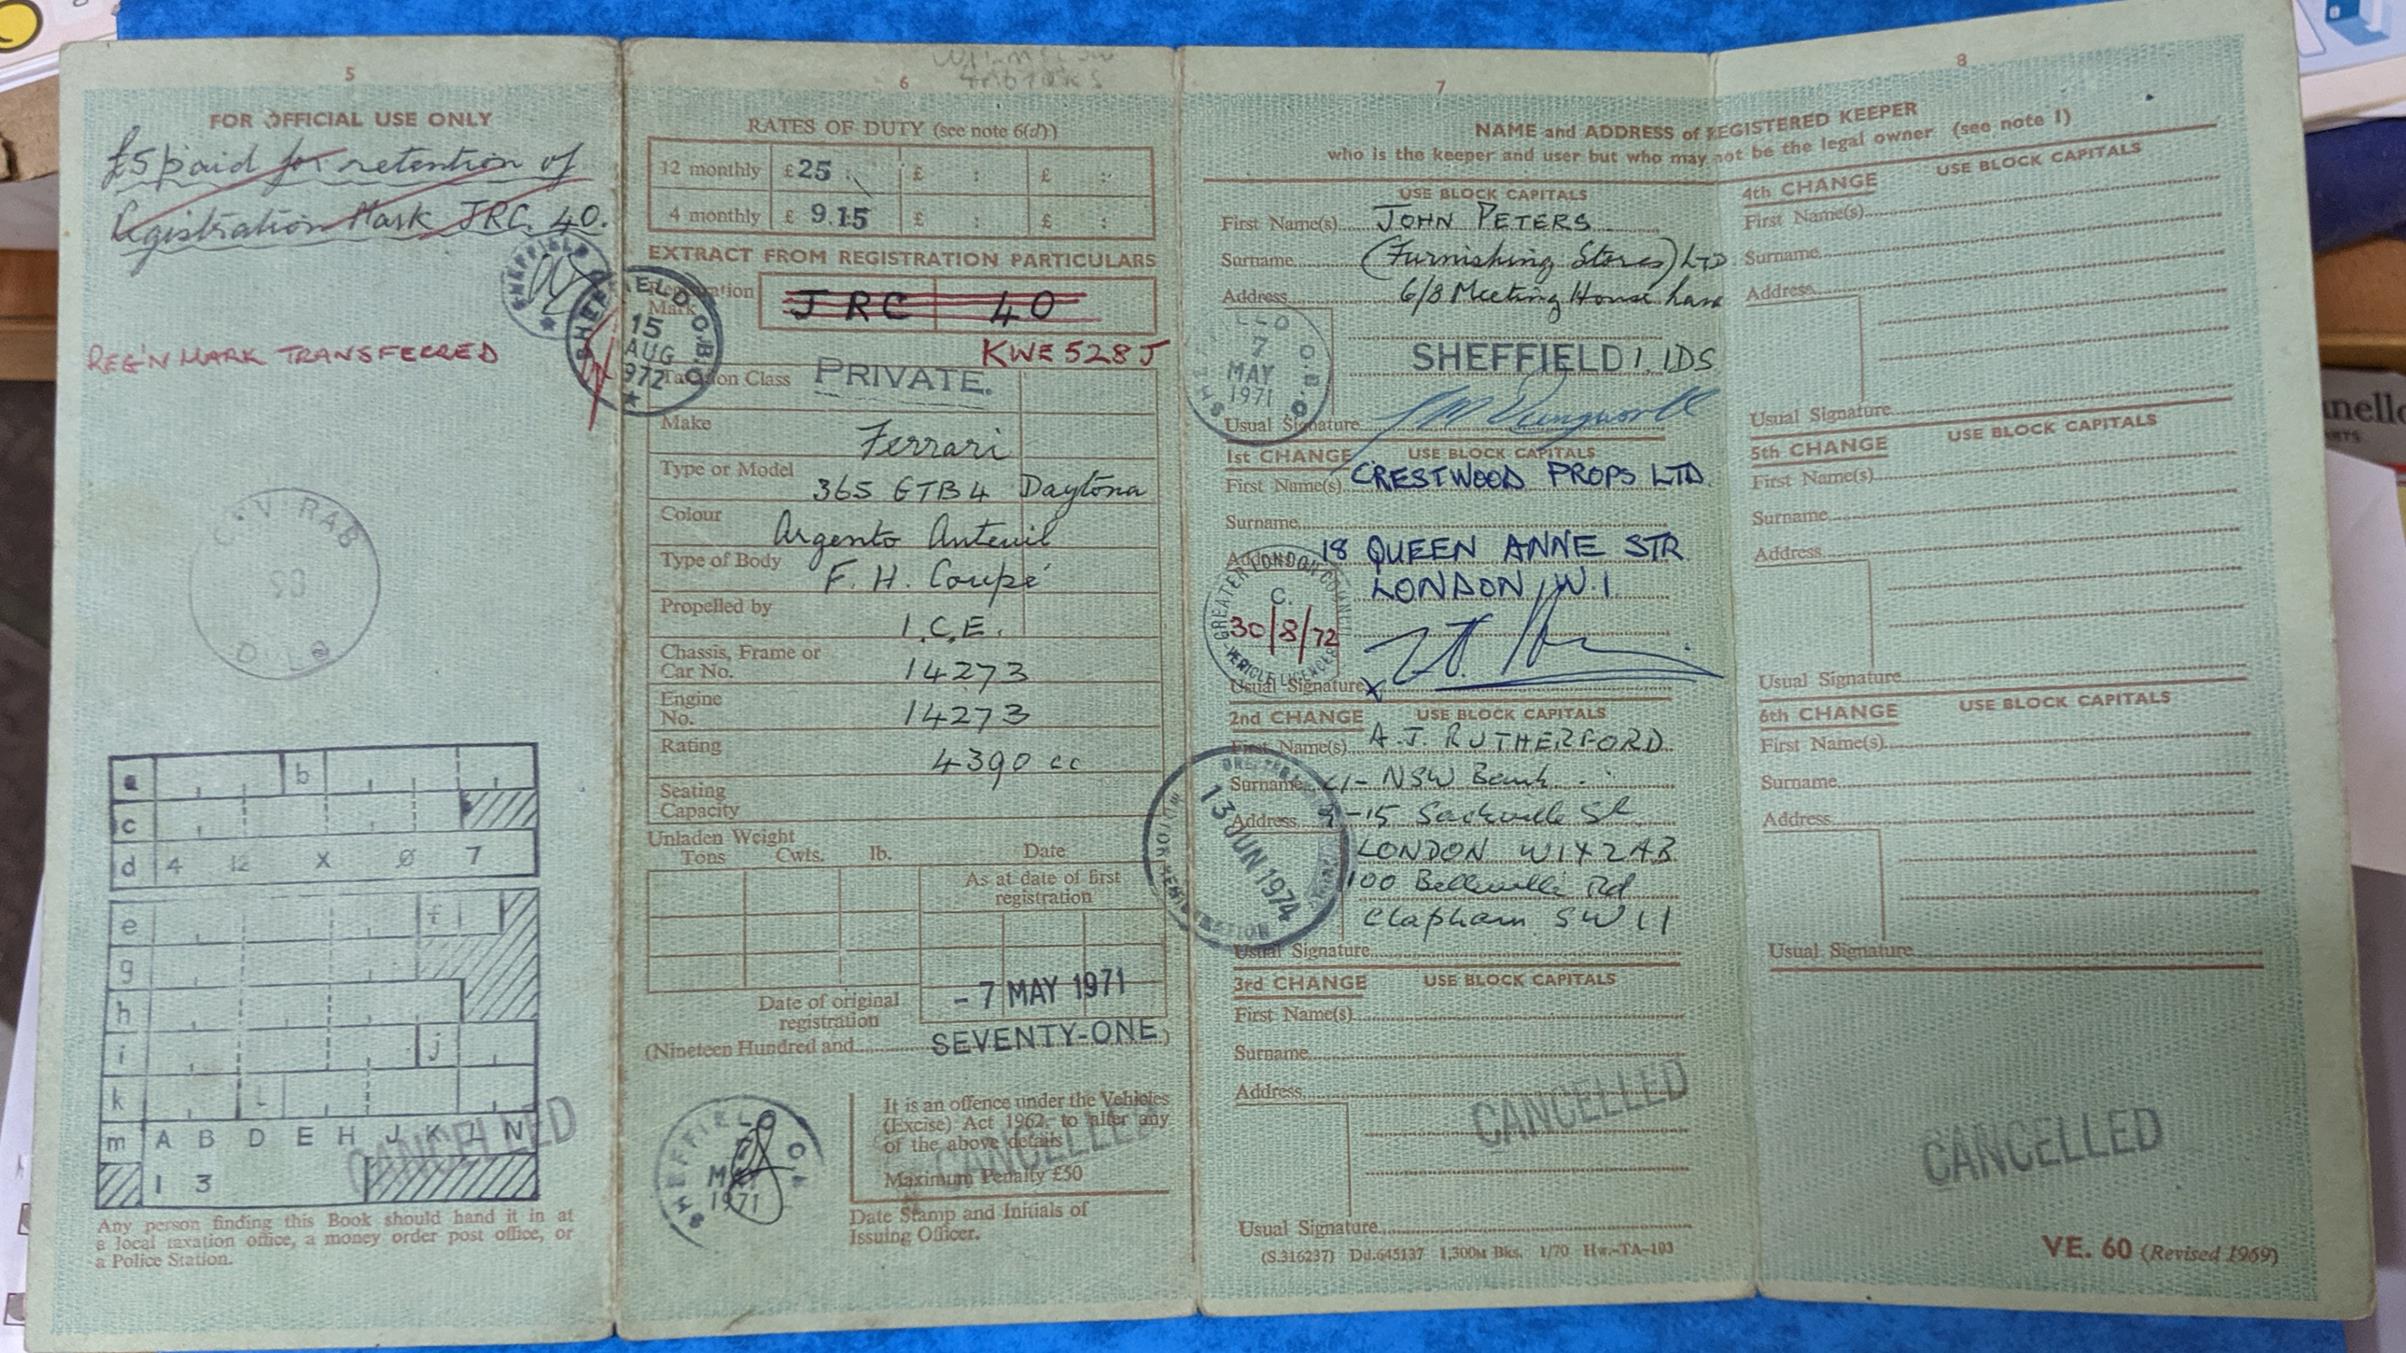 5
FOR OFFICIAL USE ONLY
£5 paid for retention of
Registration Mark JRC. 40.
SHEFFIELD
REG'N MARK TRANSFERRED
a b
c
d 4 12 X Ø 7
e f
g
h
i j
k L
m A B D E H J K L N
1 3
CANCELLED
Any person finding this Book should hand it in at
a local taxation office, a money order post office, or
a Police Station.
6
RATES OF DUTY (see note 6(d))
12 monthly £25 : £ : £ :
4 monthly £ 9.15 £ : £ :
EXTRACT FROM REGISTRATION PARTICULARS
Registration
Mark
JRC 40
KWE 528J
SHEFFIELD C.B.O.
15
AUG
1972
Taxation Class PRIVATE.
Make Ferrari
Type or Model 365 GTB4 Daytona
Colour Argento Auteuil
Type of Body F. H. Coupé
Propelled by I.C.E.
Chassis, Frame or
Car No. 14273
Engine
No. 14273
Rating 4390 cc
Seating
Capacity
Unladen Weight
Tons Cwts. lb. Date
As at date of first
registration
Date of original
registration
- 7 MAY 1971
(Nineteen Hundred and SEVENTY-ONE)
SHEFFIELD
MAY
1971
It is an offence under the Vehicles
(Excise) Act 1962, to alter any
of the above details
Maximum Penalty £50
CANCELLED
Date Stamp and Initials of
Issuing Officer.
7
8
NAME and ADDRESS of REGISTERED KEEPER
who is the keeper and user but who may not be the legal owner (see note 1)
USE BLOCK CAPITALS
First Name(s) JOHN PETERS
Surname (Furnishing Stores) LTD
Address 6/8 Meeting House Lane
SHEFFIELD 1. 1DS
7
MAY
1971
Usual Signature
1st CHANGE USE BLOCK CAPITALS
First Name(s) CRESTWOOD PROPS LTD.
Surname
Address 18 QUEEN ANNE STR
LONDON, W.1.
GREATER LONDON COUNCIL
C.
30/8/72
VEHICLE LICENCES
Usual Signature X
2nd CHANGE USE BLOCK CAPITALS
First Name(s) A.J. RUTHERFORD
Surname C/- NSW Bank
Address 9-15 Sackville St
LONDON W1X2AB
100 Belleville Rd
Clapham SW11
13 JUN 1974
Usual Signature
3rd CHANGE USE BLOCK CAPITALS
First Name(s)
Surname
Address
CANCELLED
Usual Signature
(S.316237) Dd.645137 1,300M Bks. 1/70 Hw.-TA-103
4th CHANGE USE BLOCK CAPITALS
First Name(s)
Surname
Address
Usual Signature
5th CHANGE USE BLOCK CAPITALS
First Name(s)
Surname
Address
Usual Signature
6th CHANGE USE BLOCK CAPITALS
First Name(s)
Surname
Address
Usual Signature
CANCELLED
VE. 60 (Revised 1969)